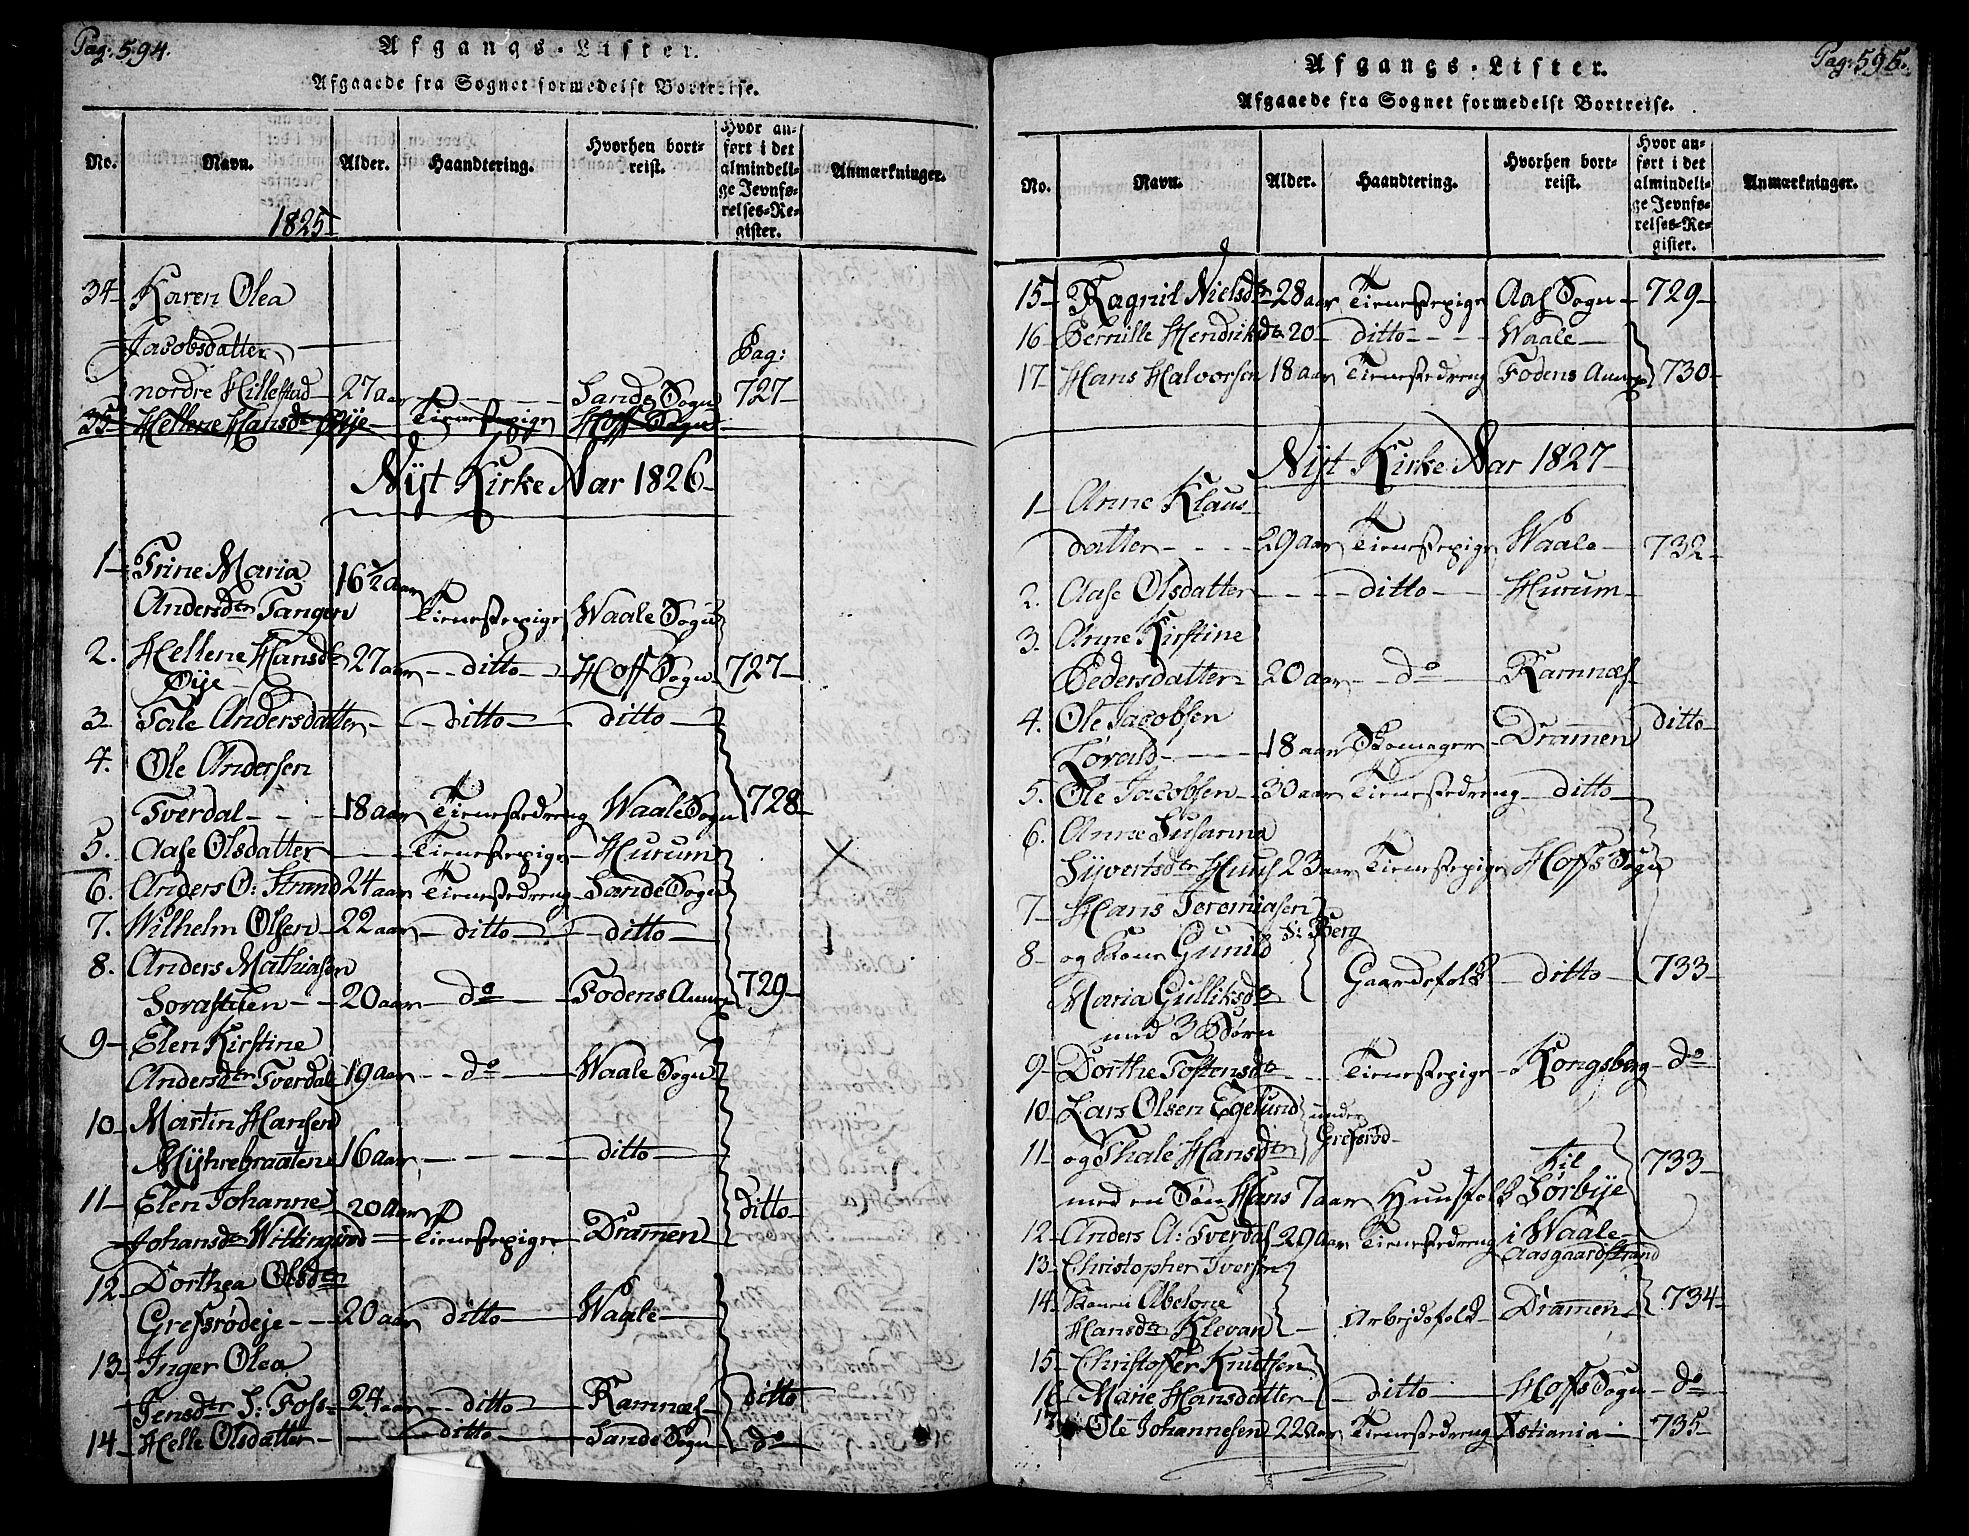 Pag: 594.
Afgangs-Lister.
Afgaaede fra Sognet formedelst Bortreise.
No. Navn. Alder. Haandtering. Hvorhen bortreist. Hvor anført i det almindelige Jevnførelses-Register. Anmærkninger.
1825
34 Karen Olea
Jacobsdatter Pag:
nordre Hillestad 27 aar Sande Sogn 727
35 Hellene Hansdr Øye Tienestepige Hoff Sogn
Nyt Kirke Aar 1826
1 Trine Maria 16 1/2 aar
Andersdtr Tangen Tienestepige Waale Sogn
2. Hellene Hansdr 27 aar ditto Hoff Sogn 727
Øye
3 Tale Andersdatter ditto ditto
4. Ole Andersen
Tverdal 18 aar Tienestedreng Waale Sogn 728
5. Aase Olsdatter Tienestepige Hurum
6. Anders O: Strand 24 aar Tienestedreng Sande Sogn
7. Wilhelm Olsen 22 aar ditto ditto
8. Anders Mathiasen
20 aar do Fodens Annex 729
9 Elen Kirstine
Andersdtr Tverdal 19 aar do Waale Sogn
10 Martin Hansen
Myhrebraaten 16 aar ditto
11 Elen Johanne 20 aar ditto
Johansdr Tienestepige Dramen
12 Dorthea Olsdtr
Grefsrødeje 20 aar ditto Waale
13 Inger Olea
Jensdtr S: Foss 24 aar ditto Ramnæs ditto
14 Helle Olsdatter ditto Sande Sogn do
Pag: 595.
Afgangs-Lister.
Afgaaede fra Sognet formedelst Bortreise.
No. Navn. Alder. Haandtering. Hvorhen bortreist. Hvor anført i det almindelige Jevnførelses-Register. Anmærkninger.
15 Ragnil Nielsdr 28 aar Tienestepige Aas Sogn 729
16 Pernille Hendriksdr 20 ditto Waale
17 Hans Halvorsen 18 aar Tienestedreng Fodens Annex 730
Nyt Kirke Aar 1827
1 Anne Klaus
datter 29 aar Tienestepige Waale 732
2. Aase Olsdatter ditto Hurum
3. Anne Kirstine
Pedersdatter 20 aar do Ramnæs
4. Ole Jacobsen ditto
18 aar Skomager Dramen
5. Ole Jacobsen 30 aar Tienestedreng ditto
6. Anne Susanna
Syvertsdtr Huus 23 aar Tienestepige Hoffs Sogn
7 Hans Jeremiasen
S: Berg
8 og Kone Gunild
Gaardefolk ditto 733
Maria Gulliksdr
med 3 Børn
9 Dorthe Tostensdr Tienestepige Kongsberg do
10 Lars Olsen Egelund under
Grefsrød
11 og Thale Hansdtr til 733
med en Søn Hans 7 aar Huusfolk Sørbye
12 Anders A: Tverdal 29 aar Tienestedreng i Waale
Aasgaardstrand
13 Christopher Iversen
14 Kone Abelone Arbejdsfolk Dramen 734
Hansdtr Klevan
15 Christoffer Knutsen
16 Marie Hansdatter ditto Hoffs Sogn do
17 Ole Johannesen 22 aar Tienestedreng Xstiania 735